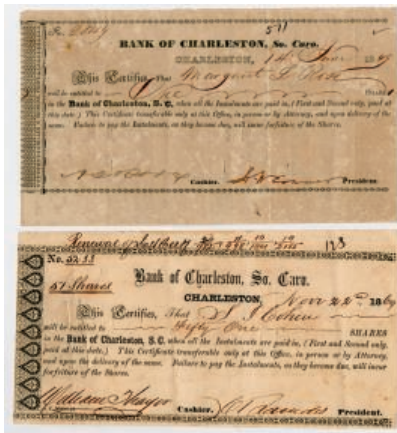 No.
511
BANK OF CHARLESTON, So. Caro.
CHARLESTON,
This Certifies, That Margaret
will be entitled to One Shares
in the Bank of Charleston, S. C., when all the Instalments are paid in, (First and Second only, paid at
this date.) This Certificate transferable only at this Office, in person or by Attorney, and upon delivery of the
same. Failure to pay the Instalments, as they become due, will incur forfeiture of the Shares.
Cashier. President.
Renewal of
128
No. 5288
51 Shares
Bank of Charleston, So. Caro.
CHARLESTON, Novr 22nd 186
This Certifies, That S. I. Cohen
will be entitled to Fifty One SHARES
in the Bank of Charleston, S. C. when all the Instalments are paid in, (First and Second only,
paid at this date.) This Certificate transferable only at this Office, in person or by Attorney,
and upon the delivery of the same. Failure to pay the Instalments, as they become due, will incur
forfeiture of the Shares.
William Thayer Cashier. President.